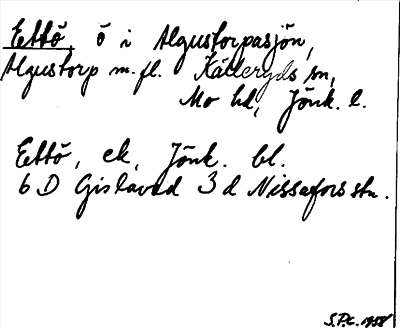 Ettö, ö i Algustorpasjön,
Algustorp m.fl. Källeryds sn,
Mo hd, Jönk. l.
Ettö, ek, Jönk. bl.
6 D Gislaved 3 d Nissafors stn.
S.P.C. 1958